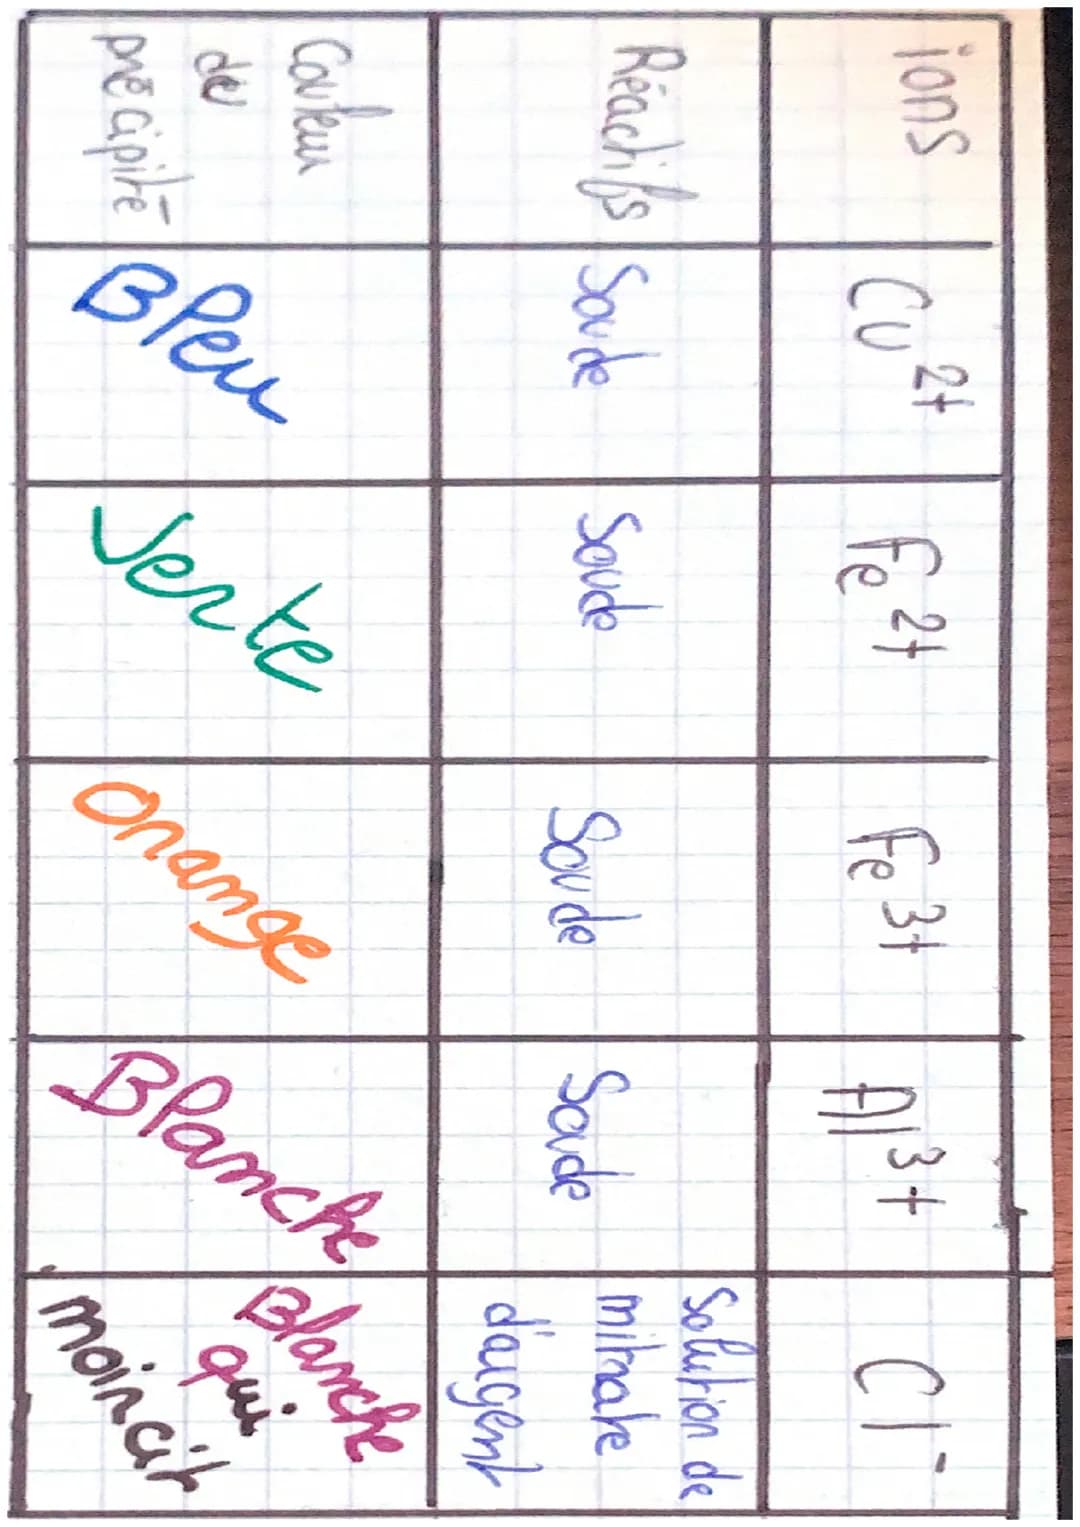 ions
Cu 2+
Fe 2+
Fe 3+
Al 3+
Cl -
Réactifs
Soude
Soude
Soude
Soude
Solution de
nitrate
d'argent
Couleur
de
précipité
Bleu
Verte
Orange
Blanche
Blanche
qui
noircit